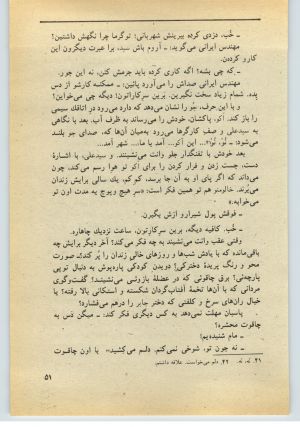 ـ خُب، دزدی کرده ببرینش شهربانی! توگرما چرا نگهش داشتین؟
مهندس ایرانی می‌گوید: ـ آروم باش سید، برا عبرت دیگرون این
کارو کردن.
ـ که چی بشه؟ اگه کاری کرده باید جرمش کنن، نه این جور.
مهندس ایرانی صداش را می‌آورد پائین: ـ ممکنه کارشو از دس
بده. شمام زیاد سخت نگیرین. برین سرکاراتون! دیگه چی می‌خواین؟
و با این حرف، جُو را نشان می‌دهد که دارد می‌رود در اتاقك سیمی
را باز کند. اکو، پاکشان، خودش را می‌رساند به ظرف آب. بعد با نگاهی
به سیدعلی و صف کارگرها می‌رود به‌میان آن‌ها که، صدای جو بلند
می‌شود: ـ نُو، نُو! ... این اکو... آمد یا ما... شهر آمد...
بعد خودش با تفنگدار جلو وانت می‌نشینند. و سیدعلی، با اشارهٔ
دست، جست زدن و فرار کردن را برای اکو تو هوا رسم می‌کند، چون
می‌داند که اگر پای او به آن جا برسد، کم کم، یك سالی برایش زندان
می‌بُرند. خالومنم هم تو همین فکر است: «سر هیچ وپوچ یه مدت اون تو
می‌خوابه.»
ـ فوقش پول شیرارو ازش بگیرن.
ـ خُب. کافیه دیگه، برین سرکاراتون، ساعت نزدیك چاهارد.
وقتی عقب وانت می‌نشیند به چه فکر می‌کند؟ آخر دیگر برایش چه
باقی‌مانده که با یادش شب‌ها و روزهای خالی زندان را پُر کند. صورت
محو و رنگ پریدهٔ دخترکی؟ دویدن کودکی پاره‌پوش به دنبال توپی
پارچه‌ئی؟ برق چاقوئی که در عضلهٔ بازوئی می‌نشیند؟ گفت‌وگوی
مردانی که با آن‌ها تخمهٔ آفتاب‌گردان شکسته و استکانی بالا رفته؟ یا
خیال ران‌های سرخ و کلفتی که دختر جابر را درهم می‌فشارد؟
پاسبان مهلت نمی‌دهد به کس دیگری فکر کند: ـ میگن دَس به
چاقوت محشره؟
ـ مام شنیده‌یم!
ـ نه جون تو، شوخی نمی‌کنم. دلم می‌کشید... با اون چاقوت
۴۱. له، له. ۴۲. دلم می‌خواست. علاقه داشتم.
۵۱